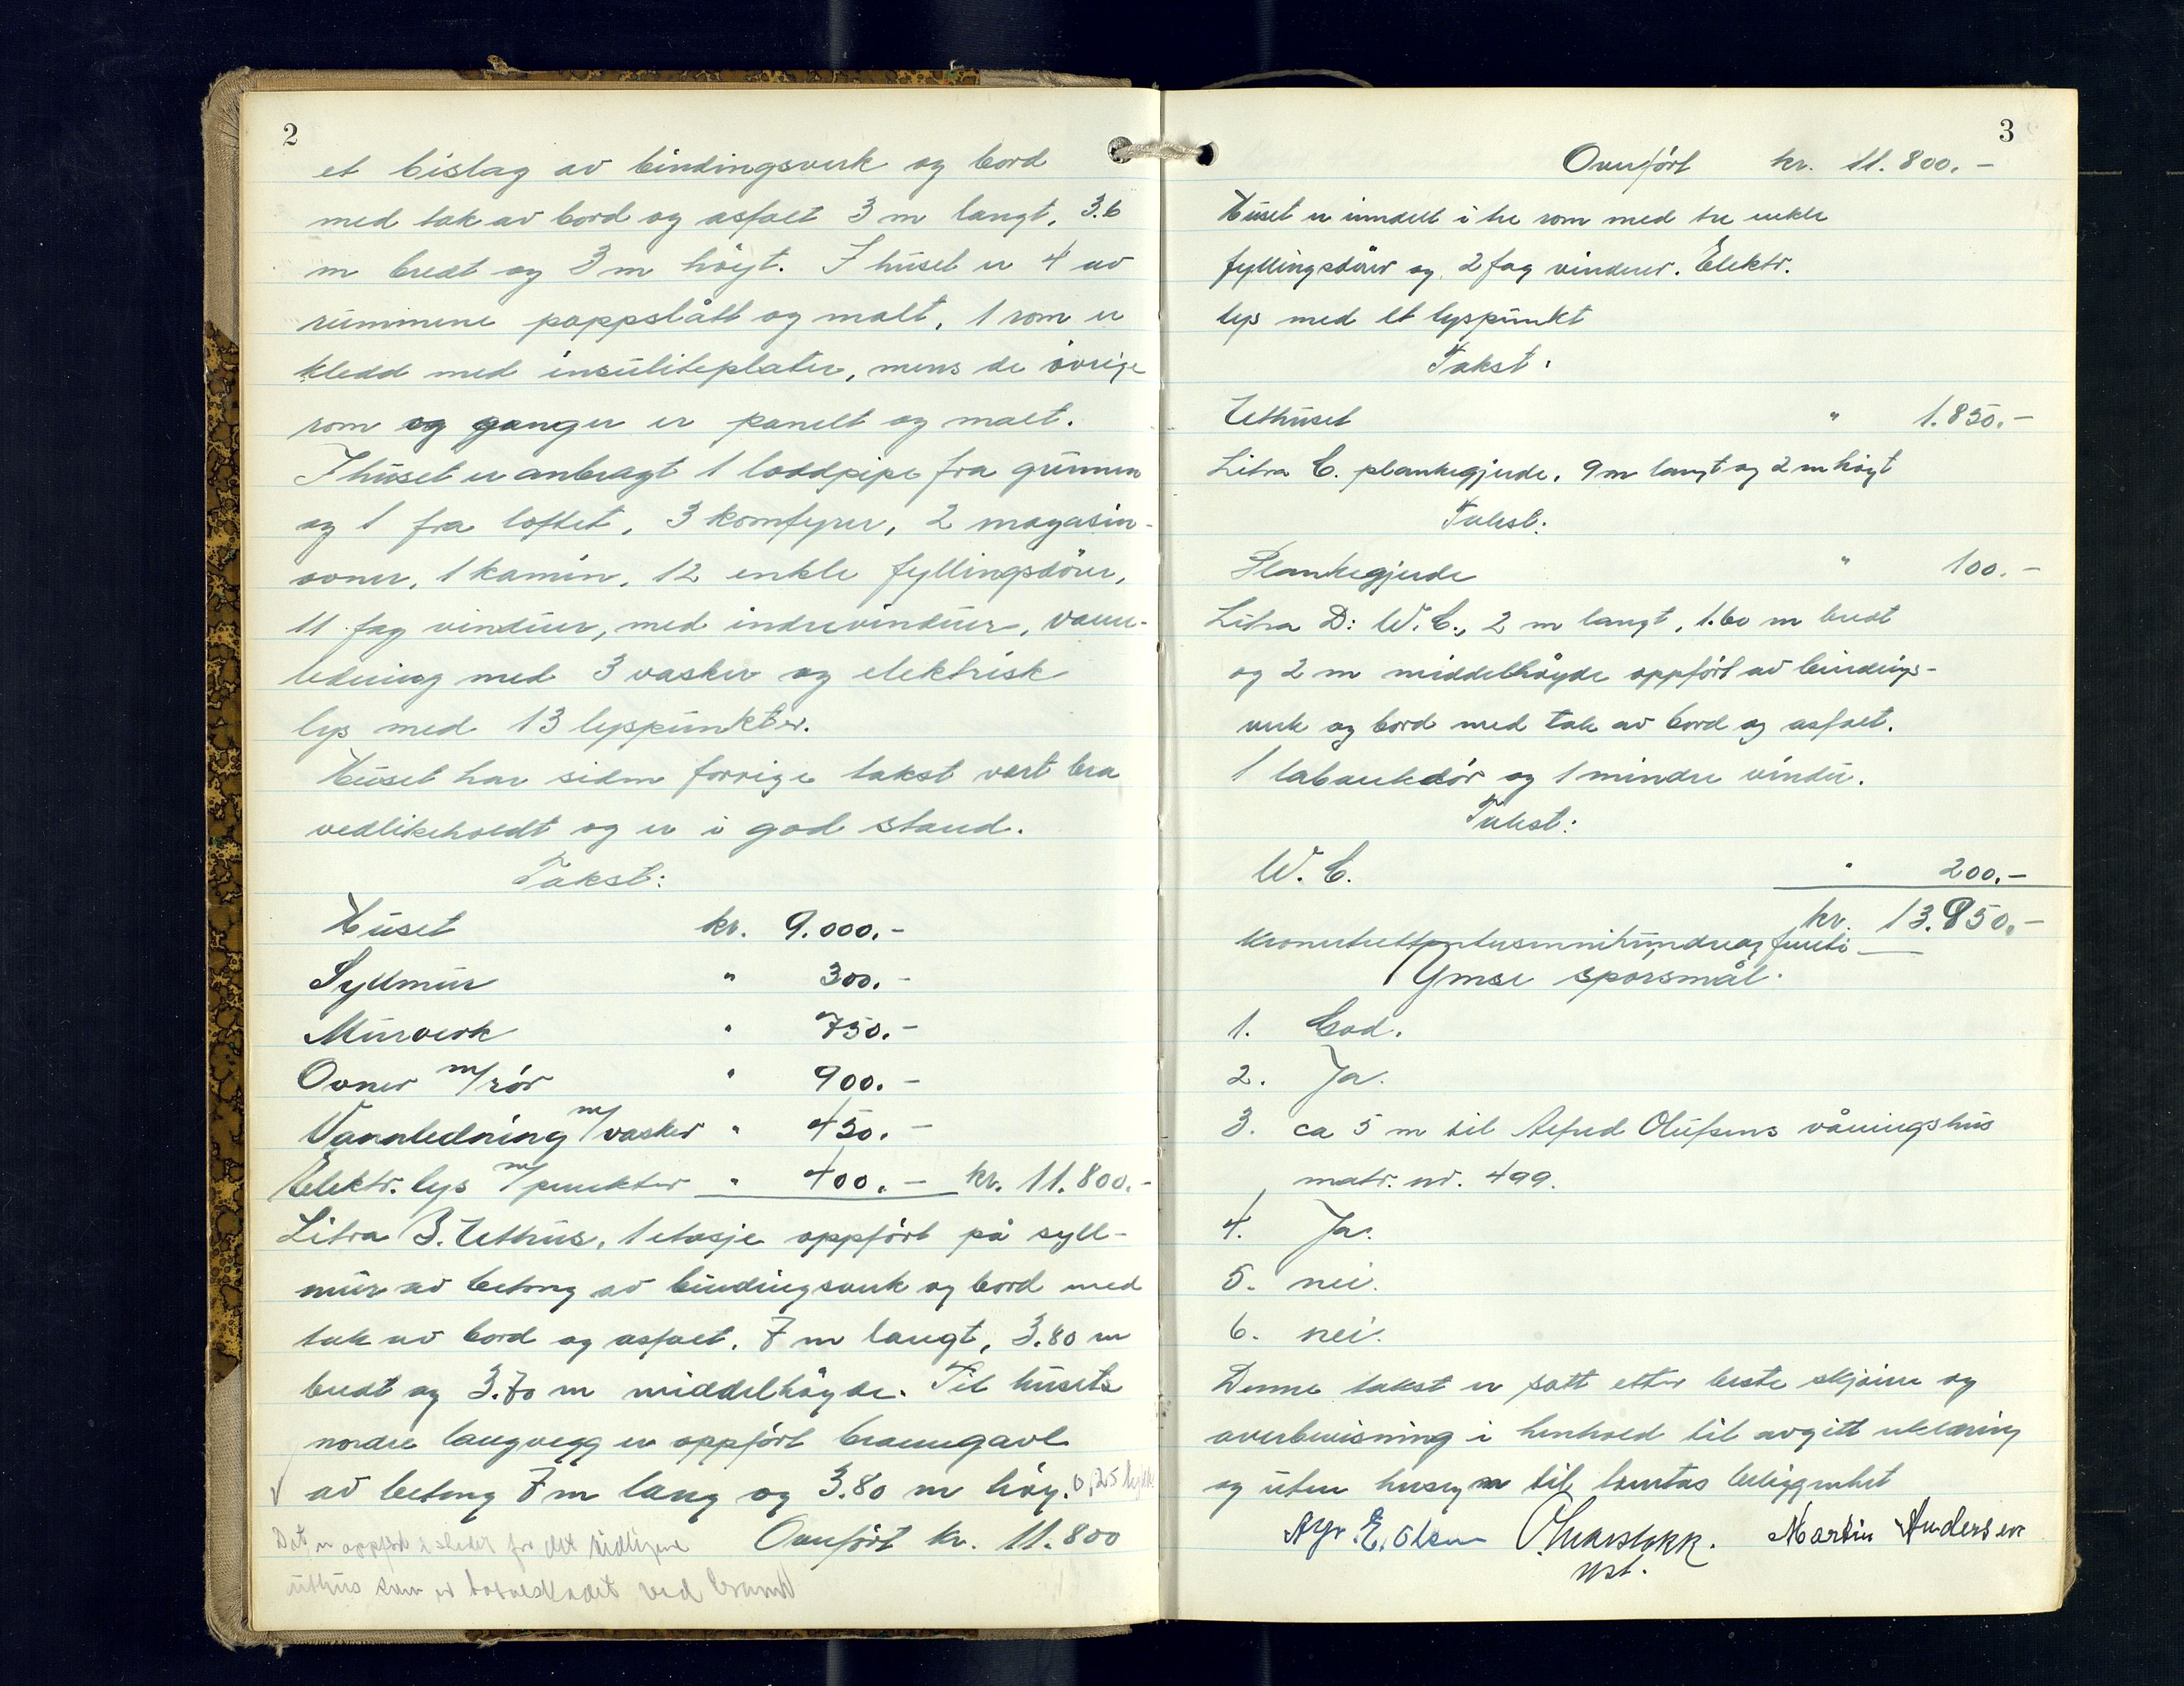 2
et bislag av bindingsverk og bord
med tak av bord og asfalt 3 m langt, 3.6
m bredt og 3 m höyt. I huset er 4 av
rummene pappslått og malt, 1 rom er
kledd med insuliteplater, mens de övrige
rom og ganger er panelt og malt.
I huset er anbragt 1 loddpipe fra grunnen
og 1 fra loftet, 3 komfyrer, 2 magasin-
ovner, 1 kamin, 12 enkle fyllingsdörer,
11 fag vinduer, med indrevinduer, vann-
ledning med 3 vasker og elektrisk
lys med 13 lyspunkter.
Huset har siden forrige takst vært bra
vedlikeholdt og er i god stand.
Takst:
Huset kr. 9.000.-
Syllmur " 300.-
Murverk " 750.-
Ovner m/rör " 900.-
Vannledning m/vasker " 450.-
Elektr. lys m/punkter " 400.- kr. 11.800.-
Litra B. Uthus, 1 etasje oppfört på syll-
mur av betong av bindingsverk og bord med
tak av bord og asfalt. 7 m langt, 3.80 m
bredt og 3.70 m middelhöyde. Til husets
nordre langvegg er oppfört branngavl
√ av betong 7 m lang og 3.80 m höy. 0,25
Overfört kr. 11.800
Det er oppfört i stedet for det tidligere
uthus som er totalskadet ved brann
3
Overfört kr. 11.800.-
Huset er inndelt i tre rom med tre enkle
fyllingsdörer og 2 fag vinduer. Elektr.
lys med et lyspunkt
Takst:
Uthuset " 1.850.-
Litra C. plankegjerde, 9 m langt og 2 m höyt
Takst:
Plankegjerde " 100.-
Litra D: W.C., 2 m langt, 1.60 m bredt
og 2 m middelhöyde oppfört av bindings-
verk og bord med tak av bord og asfalt.
1 labankdör og 1 mindre vindu.
Takst:
W.C. " 200.-
kr. 13.950.-
Kronertrettentusennihundreogfemti
Ymse sporsmål.
1. God.
2. Ja.
3. ca 5 m til Alfred Olufsens våningshus
matr. nr. 499.
4. Ja.
5. nei.
6. nei.
Denne takst er satt etter beste skjönn og
overbevisning i henhold til avgitt erklæring
og uten hensyn til tomtas beliggenhet
E. Olsen Martin Andersen